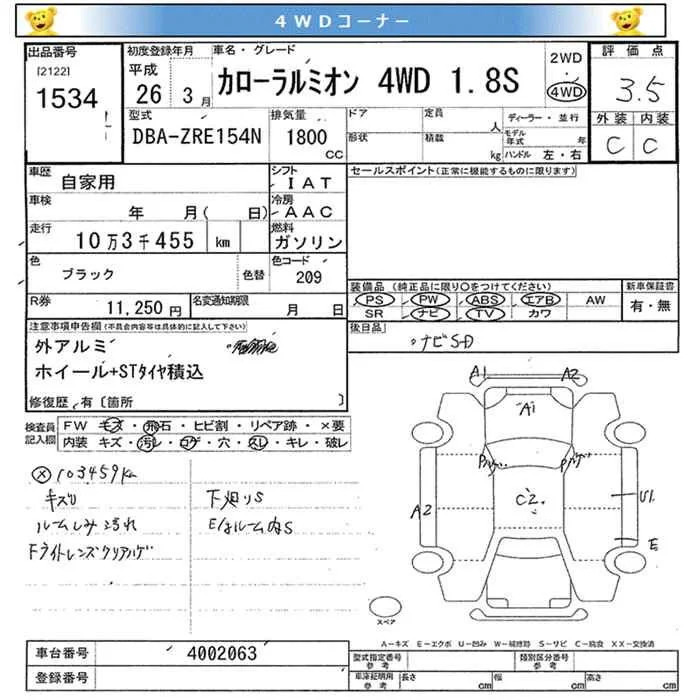 4WDコーナー
出品番号
[2122]
1534
初度登録年月
平成
26年3月
車名・グレード
カローラルミオン 4WD 1.8S
2WD
・
4WD
評価点
3.5
外装 内装
C C
型式
DBA-ZRE154N
排気量
1800
CC
ドア
形状
定員
人
積載
kg
ディーラー・並行
モデル年式 年
ハンドル 左・右
車歴
自家用
シフト
IAT
車検
年 月( 日)
冷房
AAC
走行
10万3千455 km
燃料
ガソリン
色
ブラック
色替
色コード
209
R券
11,250円
名変通知期限
月 日
セールスポイント(正常に機能するものに限ります)
装備品 (純正品に限り○をつけてください)
PS PW ABS エアB AW
SR ナビ TV カワ
新車保証書
有・無
後日品
ナビSD
注意事項申告欄(不具合内容等は具体的に記入して下さい)
外アルミ
ホイール+STタイヤ積込
修復歴・有〔箇所 〕
検査員記入欄
FW キズ・飛石・ヒビ割・リペア跡・×要
内装 キズ・汚レ・コゲ・穴・スレ・キレ・破レ
× 103459km
キズU
ルームしみ汚れ
Fライトレンズクリアハゲ
下廻りS
Eルーム内S
A1 A2
A1
C2
A2
U1
E
スペア
A-キズ E-エクボ U-凹み W-補修跡 S-サビ C-腐食 XX-交換済
車台番号
4002063
登録番号
型式指定番号
参考
類別区分番号
参考
車庫証明用
参考
長さ cm
幅 cm
高さ cm